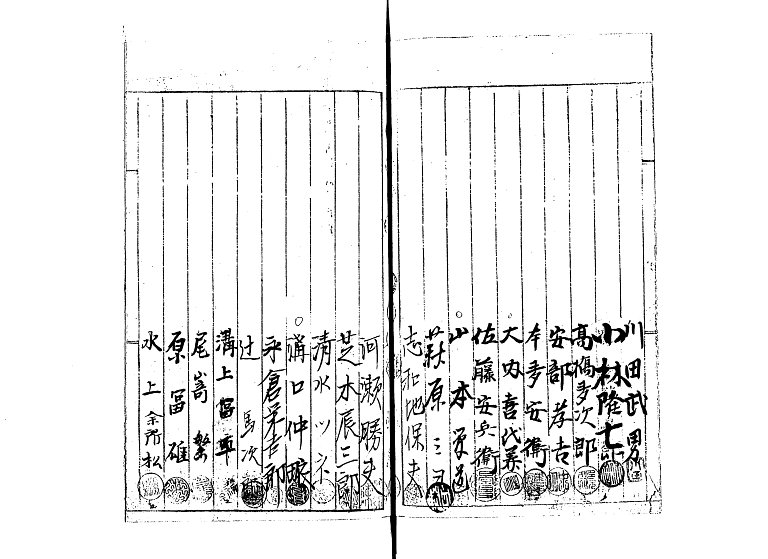 川田武男
小林隆七
高橋多次郎
安部孝吉
本多安衛
大内喜代美
佐藤安兵衛
山本
萩原三
志和地保夫
河瀬勝夫
芝木辰三郎
清水
溝口仲
永倉栄吉郎
辻馬次
溝上富平
尾嵜繁
原冨雄
水上